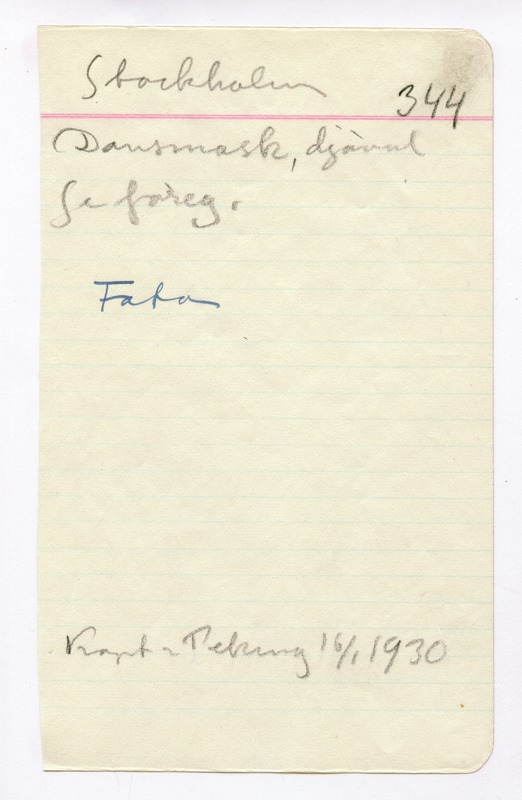 Stockholm
344
Dansmask, djävul
Se föreg.
Foto
Köpt i Peking 16/1 1930